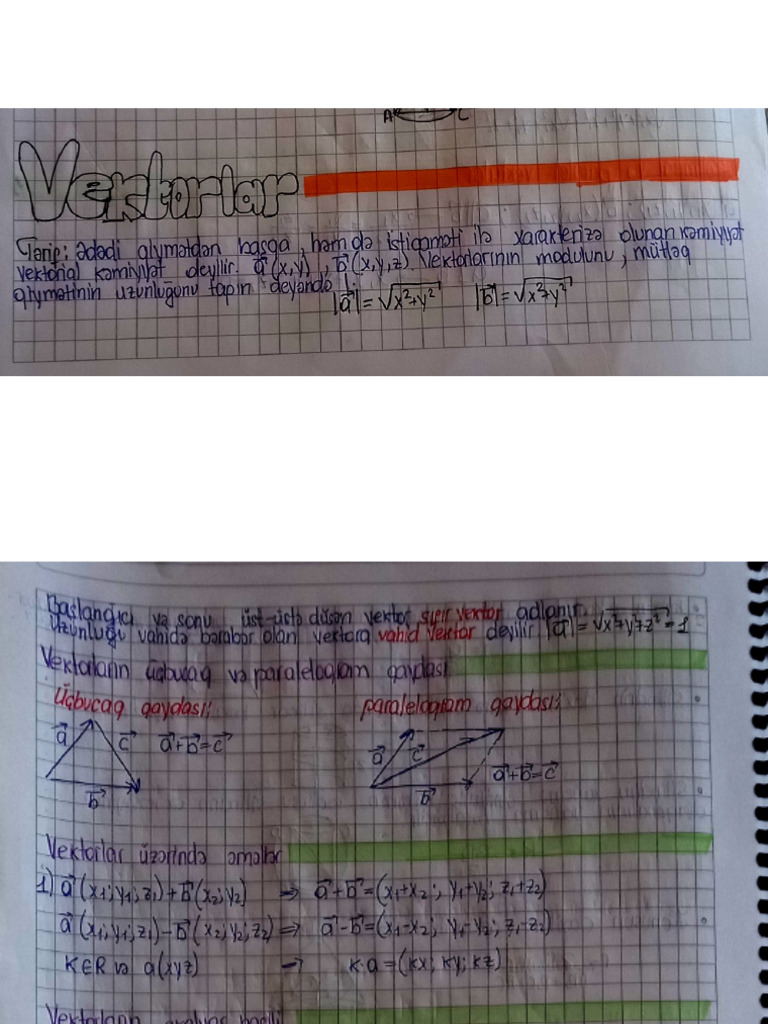 A C
Vektorlar
Tərif: Ədədi qiymətdən başqa, həm də istiqaməti ilə xarakterizə olunan kəmiyyət
vektorial kəmiyyət deyilir. a⃗(x,y), b⃗(x,y,z) Vektorlarının modulunu, mütləq
qiymətinin uzunluğunu tapın deyəndə
|a⃗|=√x²+y² |b⃗|=√x²+y²
Başlanğıcı və sonu üst-üstə düşən vektor, sıfır vektor adlanır.
Uzunluğu vahidə bərabər olan vektora vahid vektor deyilir |a⃗|=√x²+y²+z²=1
Vektorların üçbucaq və paralelogram qaydası
Üçbucaq qaydası: paralelogram qaydası:
a⃗ c⃗ a⃗+b⃗=c⃗ b⃗
a⃗ c⃗ b⃗ a⃗+b⃗=c⃗
Vektorlar üzərində əməllər
1) a⃗(x₁; y₁; z₁)+b⃗(x₂; y₂) → a⃗+b⃗=(x₁+x₂; y₁+y₂; z₁+z₂)
a⃗(x₁; y₁; z₁)-b⃗(x₂; y₂; z₂) ⇒ a⃗-b⃗=(x₁-x₂; y₁-y₂; z₁-z₂)
K∈R və a(xyz) → k·a=(kx; ky; kz)
Vektorların